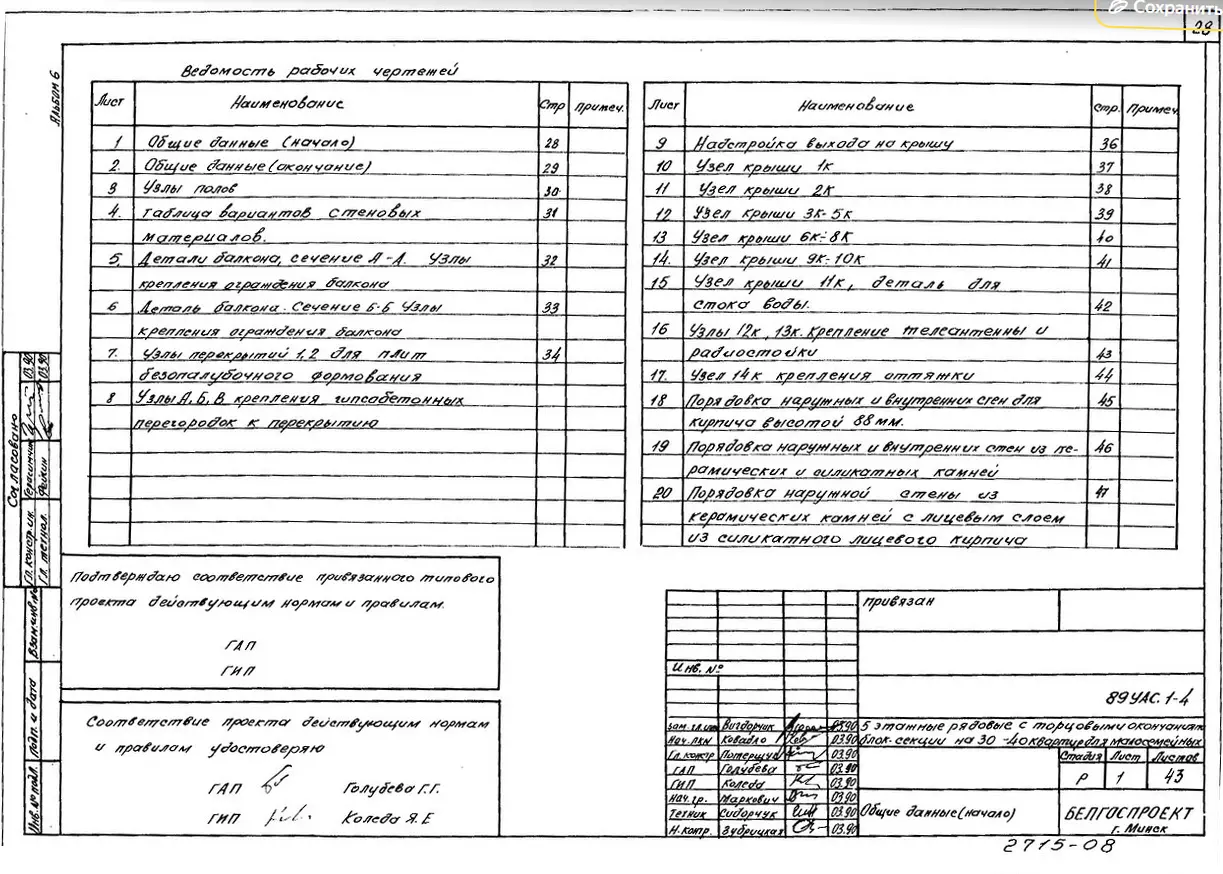 Сохранить
28
Альбом 6
Ведомость рабочих чертежей
Лист Наименование Стр Примеч.
1 Общие данные (начало) 28
2. Общие данные (окончание) 29
3 Узлы полов 30
4. Таблица вариантов стеновых 31
материалов.
5. Детали балкона, сечение А-А. Узлы 32
крепления ограждения балкона
6 Деталь балкона. Сечение Б-Б Узлы 33
крепления ограждения балкона
7. Узлы перекрытий 1,2 для плит 34
безопалубочного формования
8 Узлы А, Б, В крепления гипсабетонных
перегородок к перекрытию
Лист Наименование Стр. Примеч.
9 Надстройка выхода на крышу 36
10 Узел крыши 1к 37
11 Узел крыши 2к 38
12 Узел крыши 3к-5к 39
13 Узел крыши 6к÷8к 40
14. Узел крыши 9к-10к 41
15 Узел крыши 11к, деталь для
стока воды. 42
16 Узлы 12к, 13к. Крепление телеантенны и
радиостойки 43
17. Узел 14к крепления оттяжки 44
18 Порядовка наружных и внутренних стен для 45
кирпича высотой 88 мм.
19 Порядовка наружных и внутренних стен из ке- 46
рамических и силикатных камней
20 Порядовка наружной стены из 47
керамических камней с лицевым слоем
из силикатного лицевого кирпича
Согласовано
Гл. констр. ик. Герасимчик 03.90
Гл. технол. Фейкин 03.90
Взам. инв. №
Подп. и дата
Инв. № подл.
Подтверждаю соответствие привязанного типового
проекта действующим нормам и правилам.
ГАП
ГИП
Соответствие проекта действующим нормам
и правилам удостоверяю
ГАП Голубева Г.Г.
ГИП Коледа Я.Е
привязан
Инв. №
89УАС.1-4
Зам. гл. инж Вигдорчик 03.90
Нач. ПКМ Ковалло 03.90
Гл. констр Потерщук 03.90
ГАП Голубева 03.90
ГИП Коледа 03.90
Нач. гр. Маркевич 03.90
Техник Сидорчук 03.90
Н. контр. Зубрицкая 03.90
5 этажные рядовые с торцовыми окончаниями
блок-секции на 30-40 квартир для малосемейных
Стадия Лист Листов
Р 1 43
Общие данные (начало)
БЕЛГОСПРОЕКТ
г. Минск
2715-08